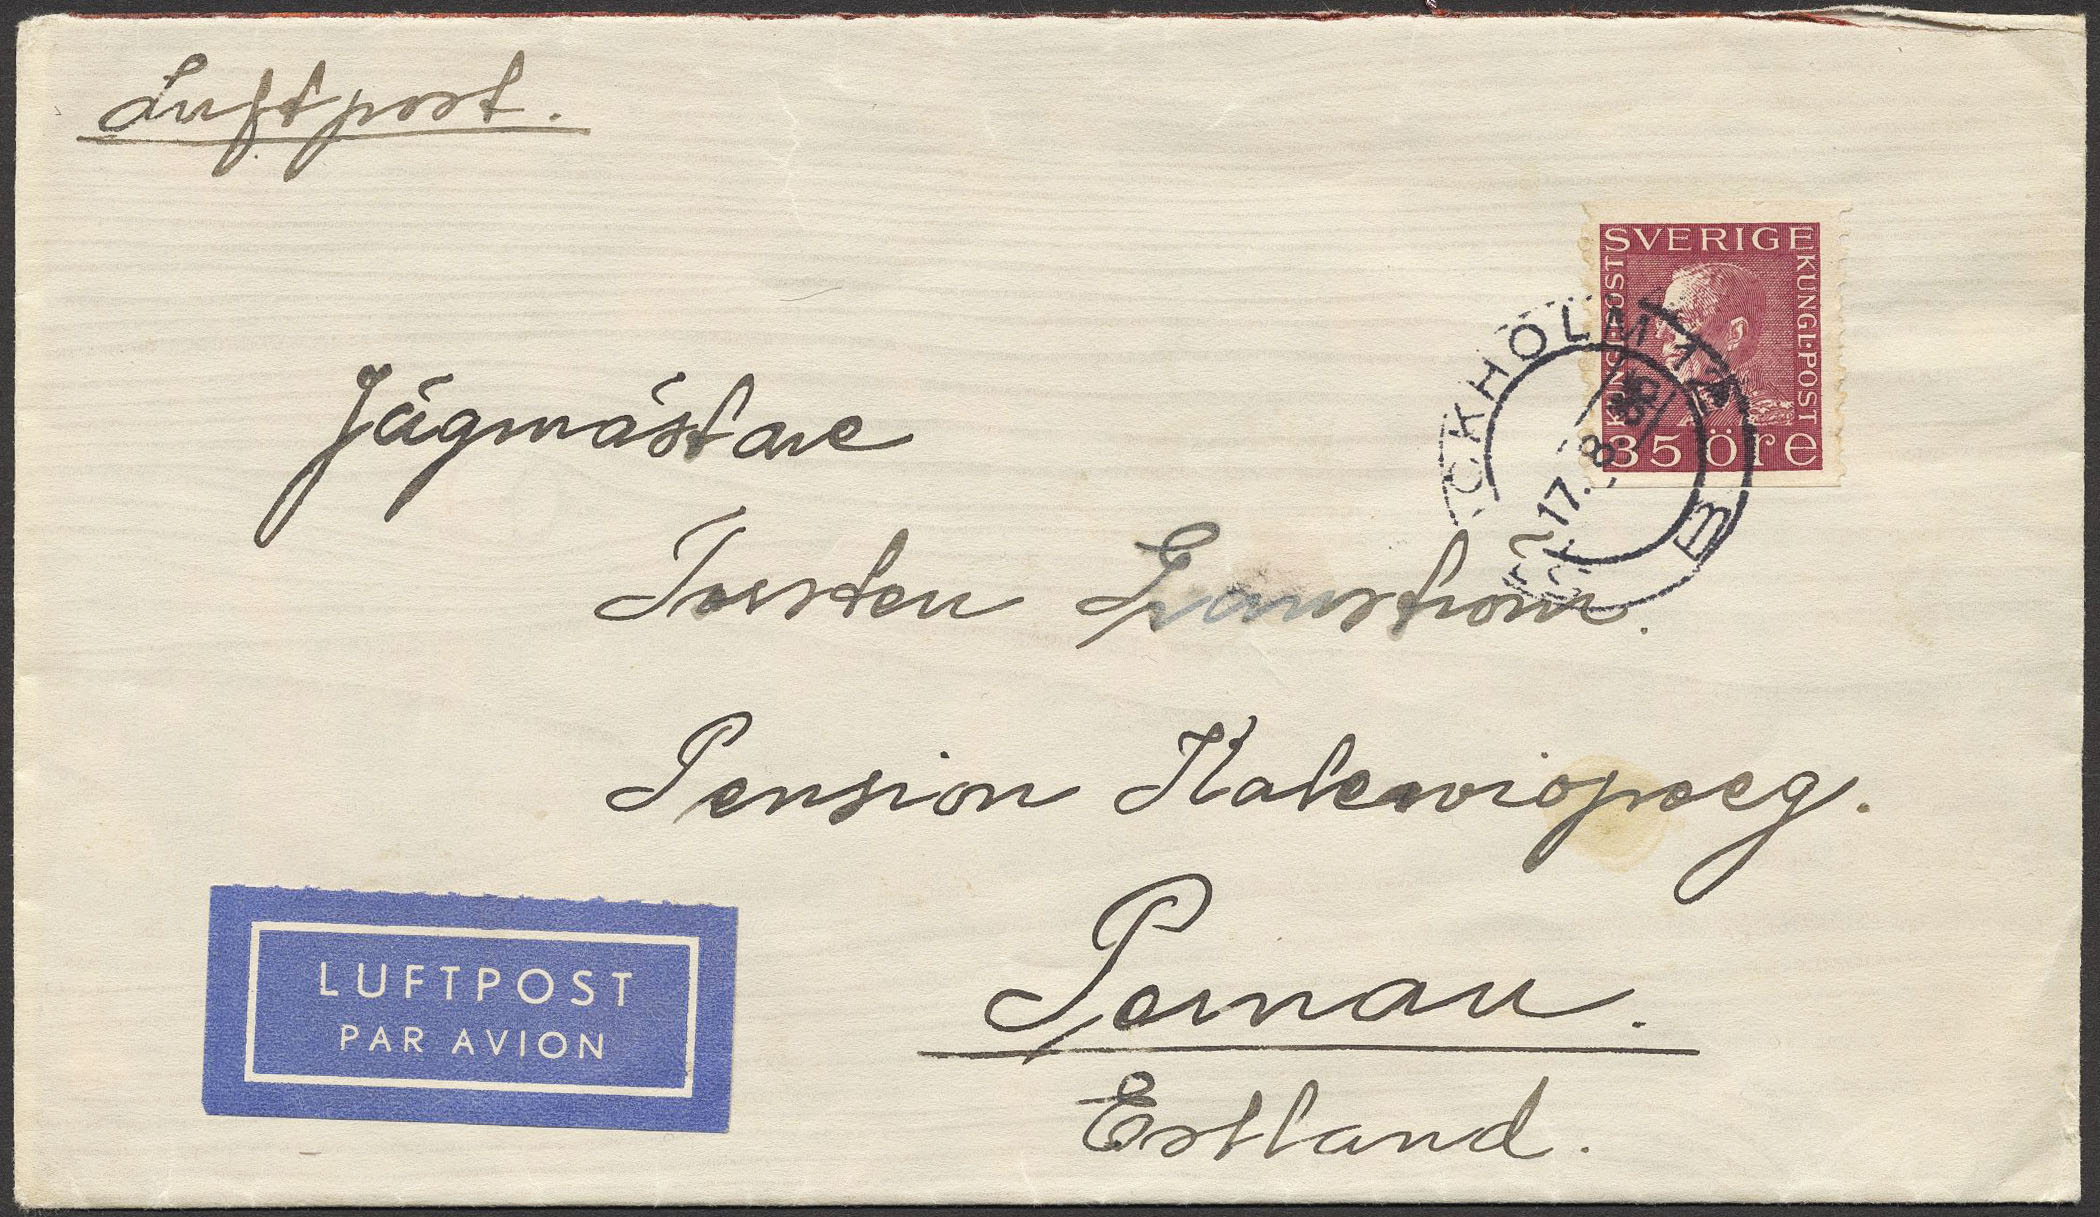 Luftpost.
SVERIGE
KUNGL·POST
KUNGL·POST
35 öre
STOCKHOLM 12
17. 8.
Jägmästare
Torsten
Pension Kalewiopoeg.
Pernau.
Estland.
LUFTPOST
PAR AVION